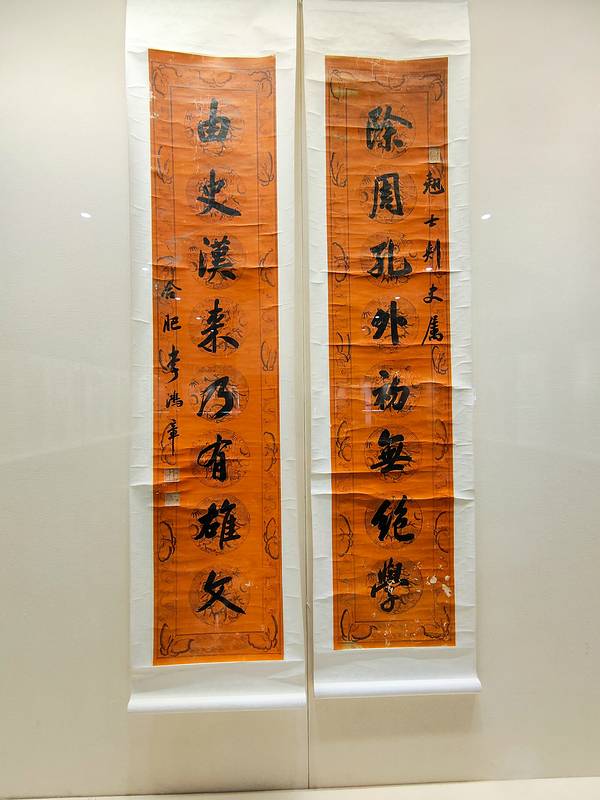 翹士刺史属
除周孔外初無絕學
由史漢来乃有雄文
合肥李鴻章